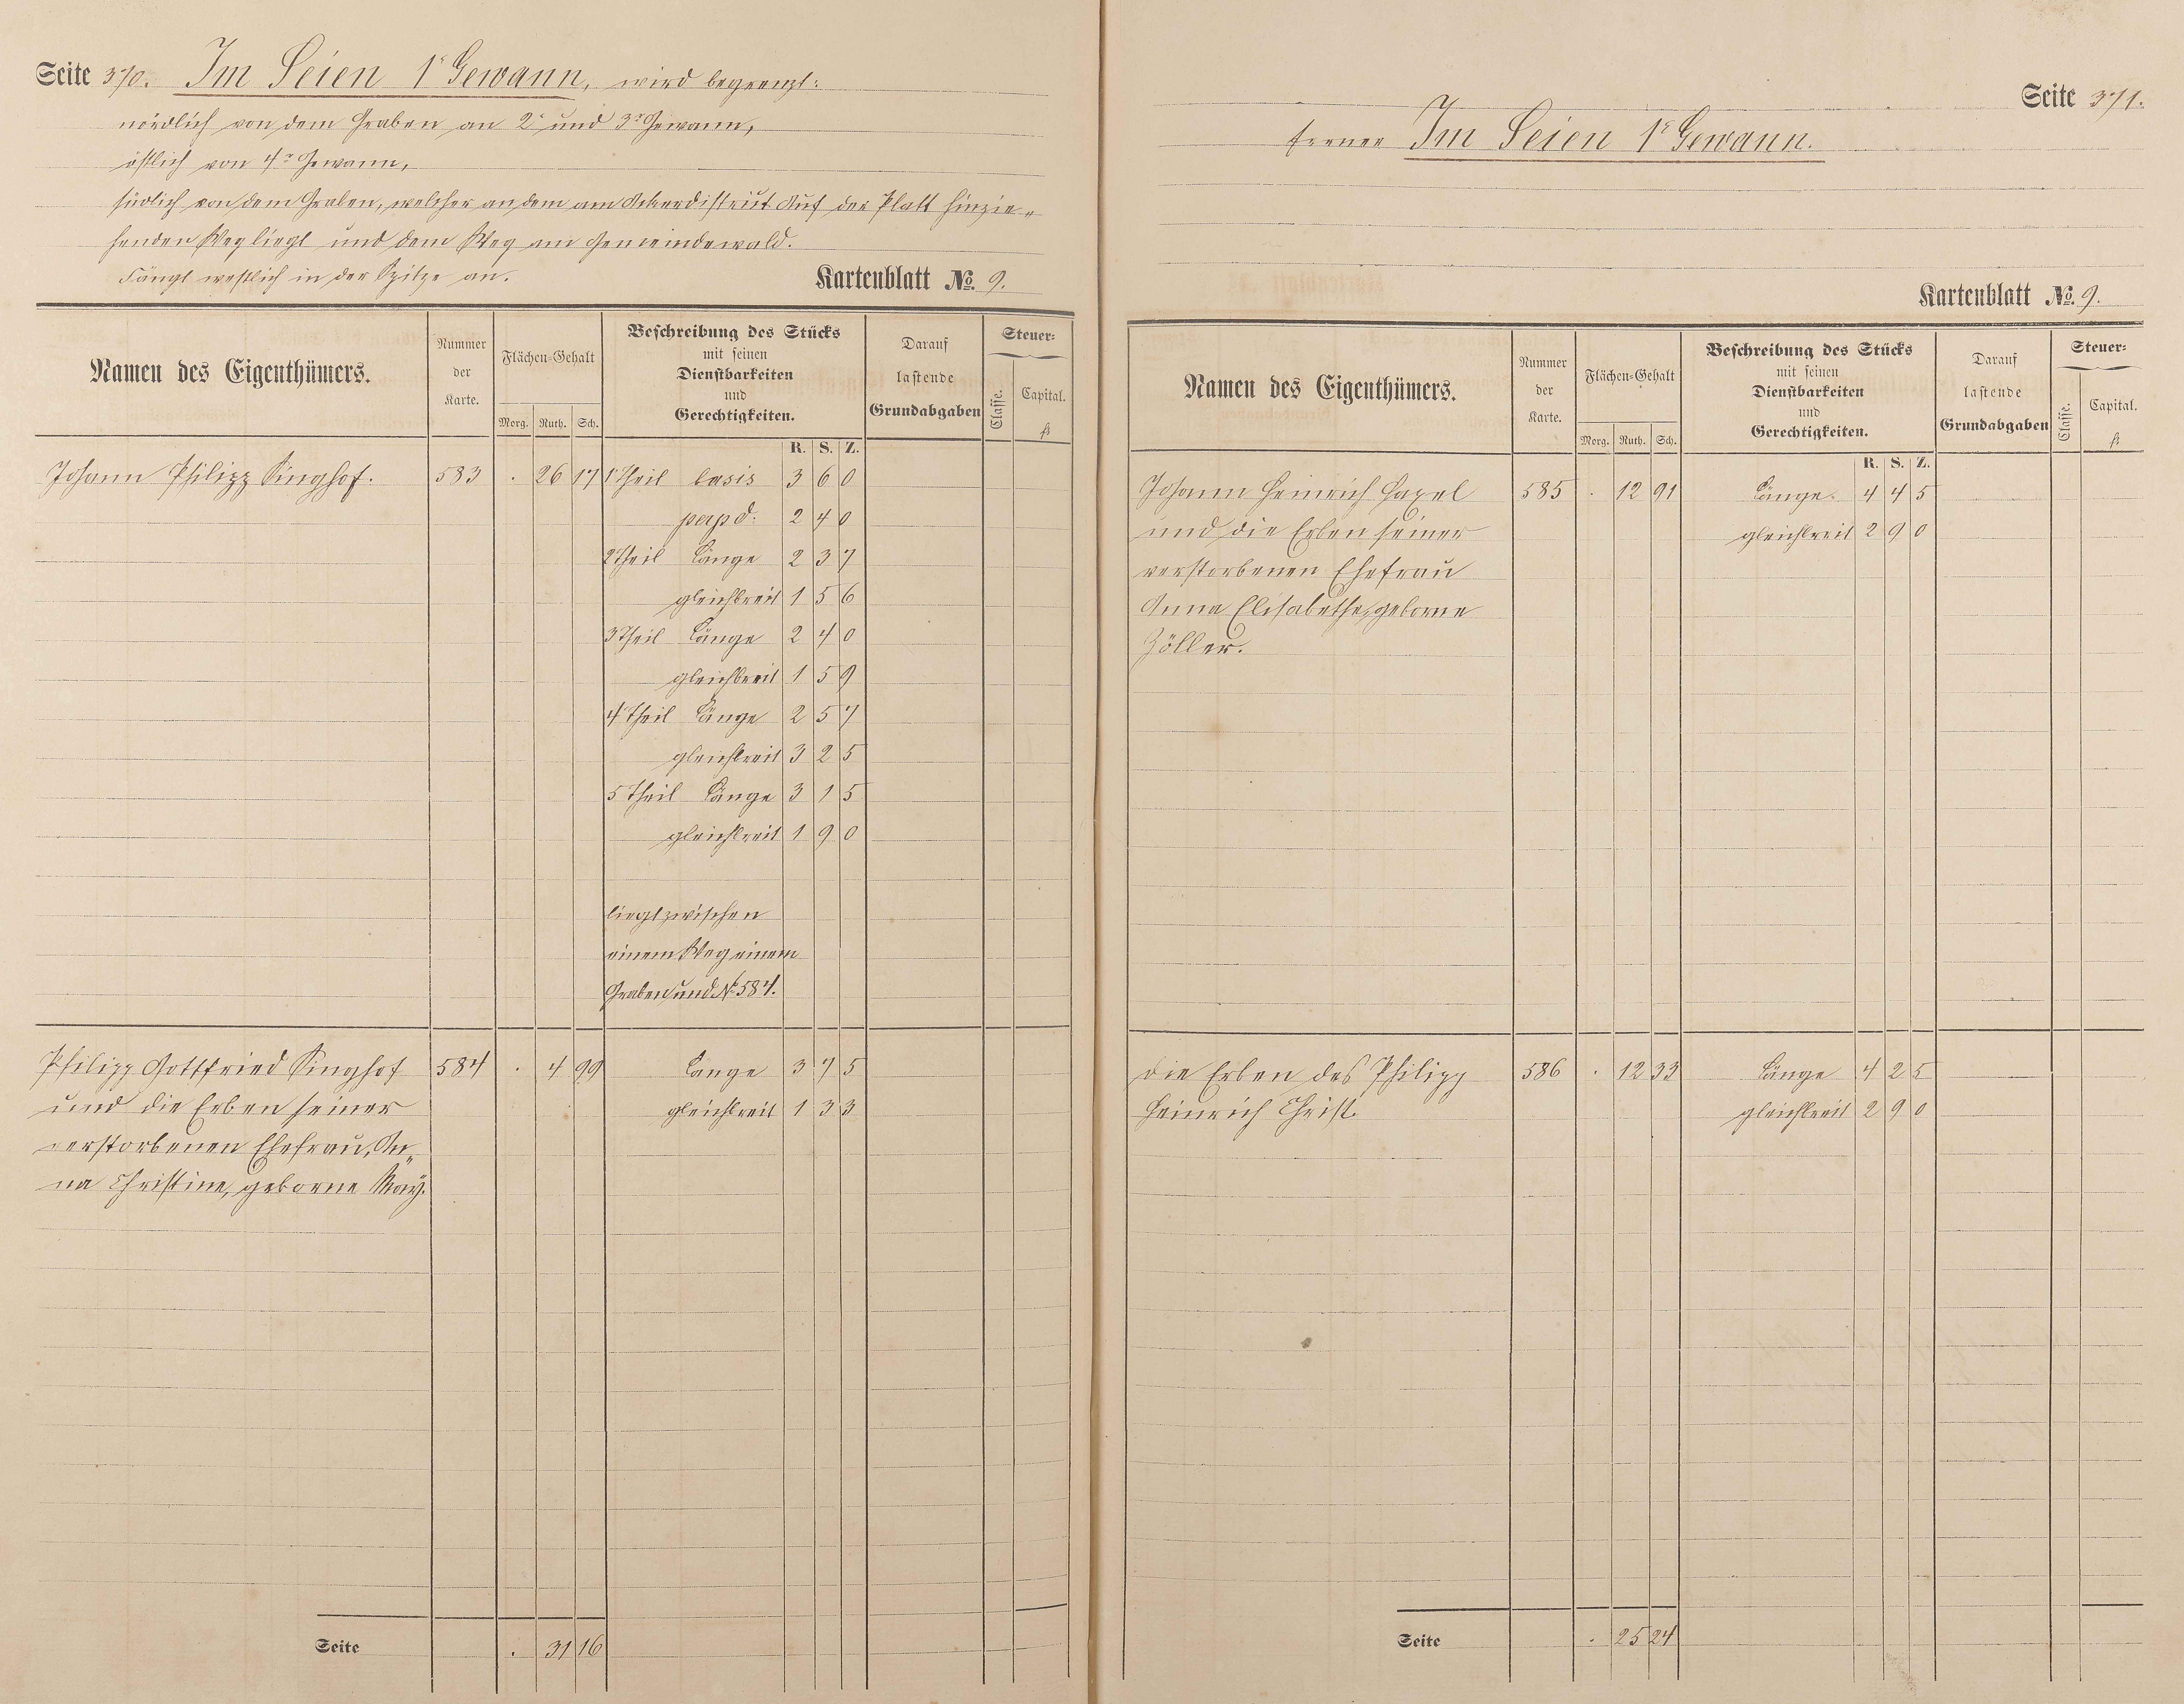 Seite 370. Im Seien 1r Gewann, wird begrenzt:
nördlich von dem Graben an 2r und 3r Gewann,
östlich von 4r Gewann,
südlich von dem Graben, welcher an dem am Ackerdistrict Auf der Platt hinzie-
henden Weg liegt und dem Weg am Gemeindewald.
Fängt westlich in der Spitze an.
Kartenblatt No. 9.
Namen des Eigenthümers.
Nummer der Karte.
Flächen-Gehalt
Morg. Ruth. Sch.
Beschreibung des Stücks
mit seinen
Dienstbarkeiten
und
Gerechtigkeiten.
R. S. Z.
Darauf
lastende
Grundabgaben
Steuer-
Classe. Capital.
fl
Johann Philipp Singhof. 583 . 26 17 1r Theil basis 3 6 0
perpd: 2 4 0
2 Theil Länge 2 3 7
gleichbreit 1 5 6
3 Theil Länge 2 4 0
gleichbreit 1 5 9
4 Theil Länge 2 5 7
gleichbreit 3 2 5
5 Theil Länge 3 1 5
gleichbreit 1 9 0
liegt zwischen
einem Weg einem
Graben und No 584.
Philipp Gottfried Singhof 584 . 4 99 Länge 3 7 5
und die Erben seiner gleichbreit 1 3 3
verstorbenen Ehefrau, An-
na Christine, geborne May.
Seite . 31 16
Seite 371.
ferner Im Seien 1r Gewann.
Kartenblatt No. 9.
Namen des Eigenthümers.
Nummer der Karte.
Flächen-Gehalt
Morg. Ruth. Sch.
Beschreibung des Stücks
mit seinen
Dienstbarkeiten
und
Gerechtigkeiten.
R. S. Z.
Darauf
lastende
Grundabgaben
Steuer-
Classe. Capital.
fl
Johann Heinrich Hapel 585 . 12 91 Länge. 4 4 5
und die Erben seiner gleichbreit 2 9 0
verstorbenen Ehefrau
Anna Elisabethe, geborne
Zöller.
die Erben des Philipp 586 . 12 33 Länge 4 2 5
Heinrich Christ. gleichbreit 2 9 0
Seite . 25 24